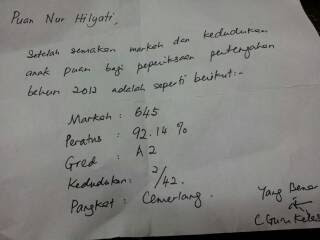 Puan Nur Hilyati,
Setelah semakan markah dan kedudukan
anak puan bagi peperiksaan pertengahan
tahun 2012 adalah seperti berikut:-
Markah : 645
Peratus : 92.14 %
Gred : A2
Kedudukan: 2/42.
Pangkat : Cemerlang.
Yang Benar
(Guru Kelas